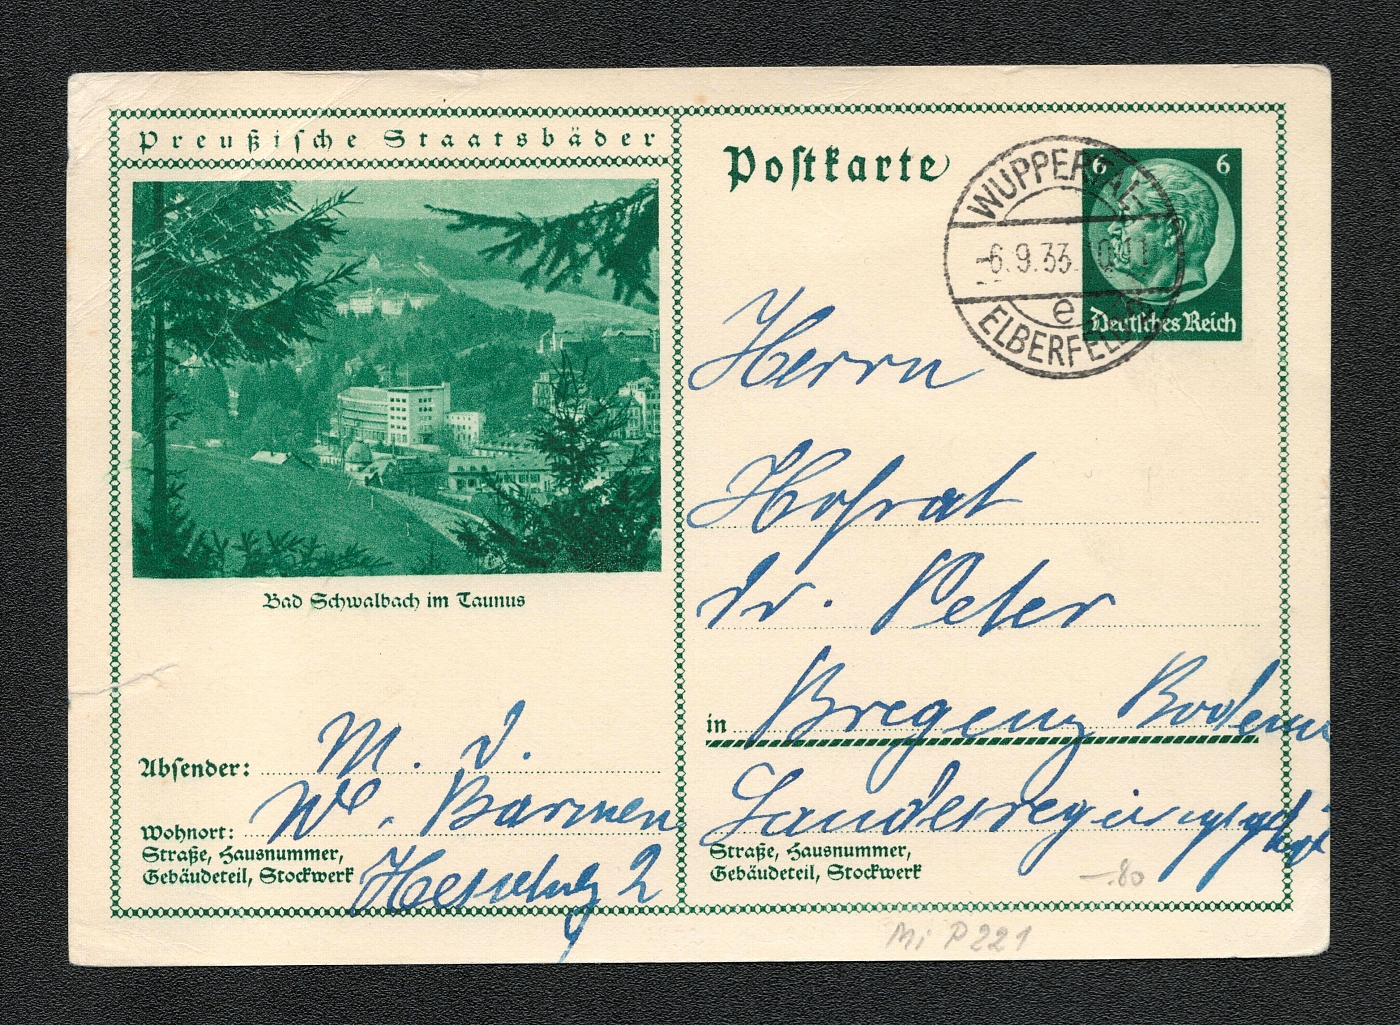 Preußische Staatsbäder
Bad Schwalbach im Taunus
Absender: M. J.
Wohnort: W. Barmen
Straße, Hausnummer,
Gebäudeteil, Stockwerk
2
Postkarte
6 6
Deutsches Reich
WUPPERTAL-
-6.9.33.
e
ELBERFELD
Herrn
Hofrat
Dr. Peter
in Bregenz
Straße, Hausnummer,
Gebäudeteil, Stockwerk
-.80
Mi P221